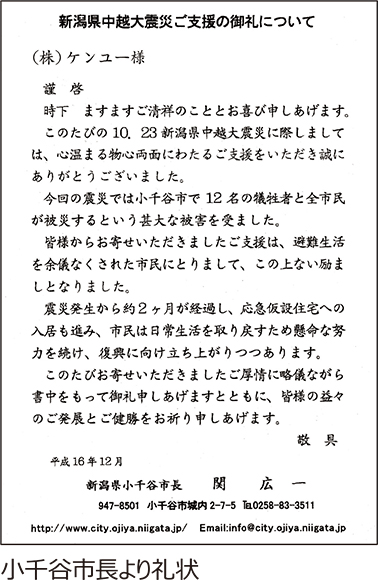 新潟県中越大震災ご支援の御礼について
(株)ケンユー様
謹 啓
時下 ますますご清祥のこととお喜び申しあげます。
このたびの10．23新潟県中越大震災に際しまして
は、心温まる物心両面にわたるご支援をいただき誠に
ありがとうございました。
今回の震災では小千谷市で12名の犠牲者と全市民
が被災するという甚大な被害を受ました。
皆様からお寄せいただきましたご支援は、避難生活
を余儀なくされた市民にとりまして、この上ない励ま
しとなりました。
震災発生から約2ヶ月が経過し、応急仮設住宅への
入居も進み、市民は日常生活を取り戻すため懸命な努
力を続け、復興に向け立ち上がりつつあります。
このたびお寄せいただきましたご厚情に略儀ながら
書中をもって御礼申しあげますとともに、皆様の益々
のご発展とご健勝をお祈り申しあげます。
敬 具
平成16年12月
新潟県小千谷市長 関 広 一
947-8501 小千谷市城内2-7-5 ℡0258-83-3511
http://www.city.ojiya.niigata.jp/ Email:info@city.ojiya.niigata.jp
小千谷市長より礼状